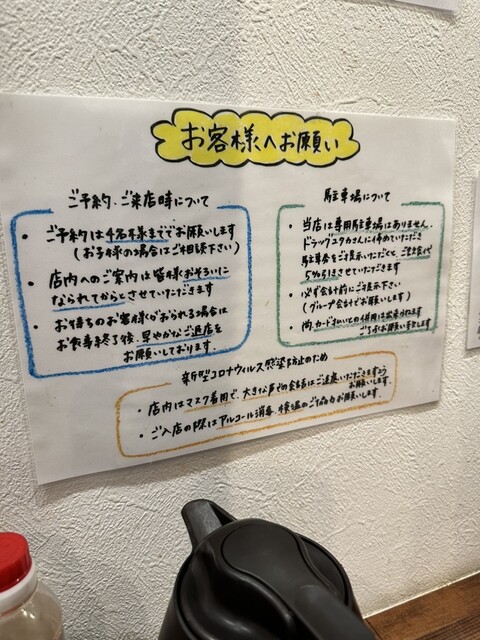 お客様へお願い
ご予約、ご来店時について
・ご予約は4名様までお願いします
(お子様の場合はご相談下さい)
・店内へのご案内は皆様おそろいに
なられてからとさせていただきます
・お待ちのお客様がおられる場合は
お食事終了後、早やかなご退店を
お願いしております。
駐車場について
・当店は専用駐車場はありません
ドラッグユタカさんに停めていただき
駐車券をご提示いただくと、ご飲食代
5%引きさせていただきます
・必ず会計前にご提示下さい
(グループ会計でお願いします)
・尚、カード払いとの併用は出来かねます
お願い致します
新型コロナウィルス感染防止のため
・店内はマスク着用で、大きな声での会話はご遠慮いただきますよう
お願いします。
・ご入店の際はアルコール消毒、検温のご協力お願いします。